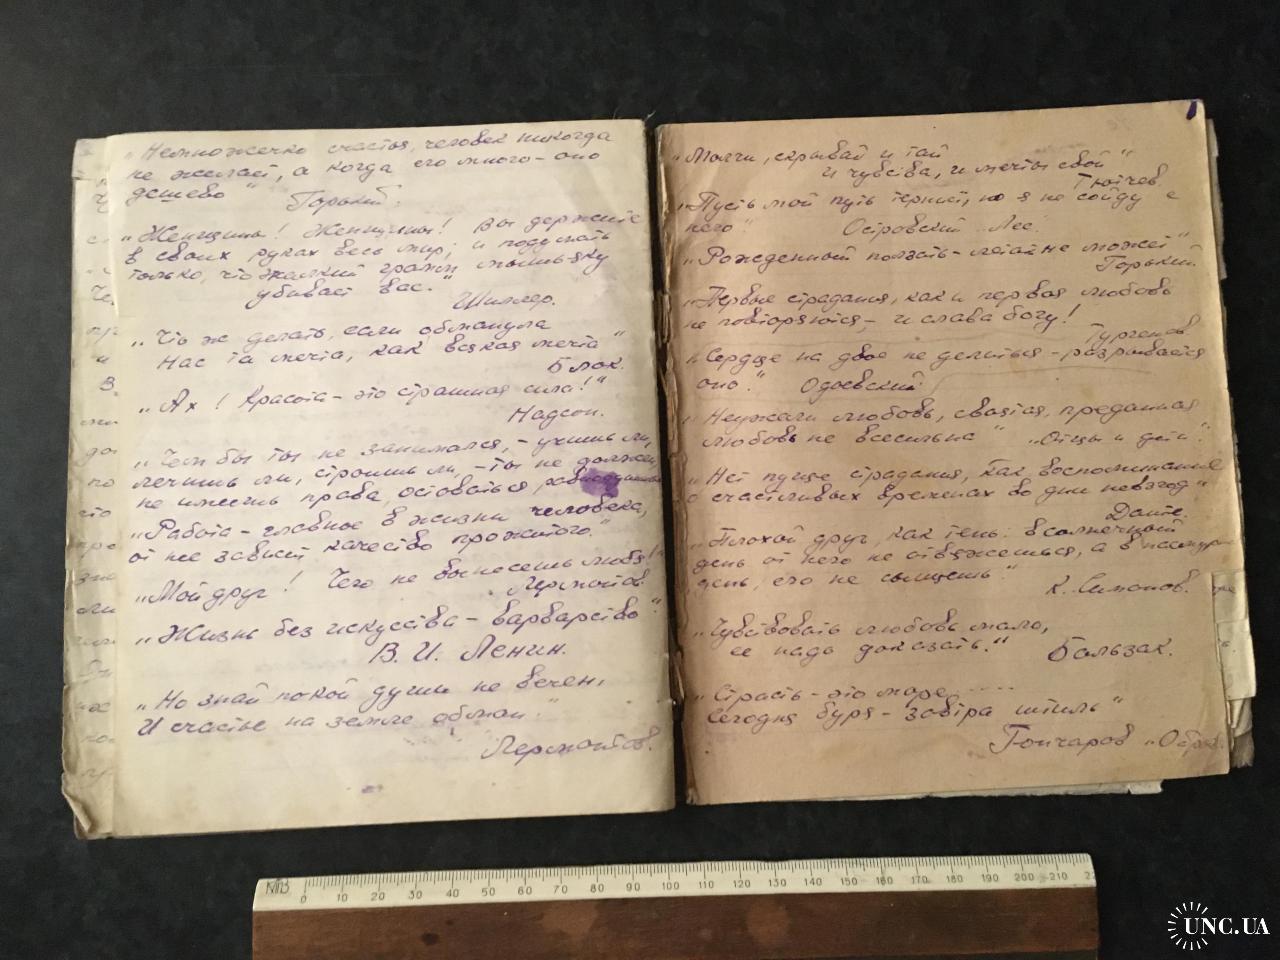 „Немножечко счастья, человек никогда
не желает, а когда его много – оно
дешево“ Горький.
„Женщины! Женщины! Вы держите
в своих руках весь мир; и подумать
только, что жалкий грамм мышьяку
убивает вас.“
Шиллер.
„Что ж делать, если обманула
Нас та мечта, как всякая мечта“
Блок.
„Ах! Красота – это страшная сила!“
Надсон.
„Чем бы ты не занимался, – учишь ли,
лечишь ли, строишь ли, – ты не должен,
не имеешь права, оставаться равнодушным
„Работа – главное в жизни человека,
от нее зависит качество прожитого.“
„Мой друг! Чего не вынесешь любя!“
Лермонтов.
„Жизнь без искусства – варварство“.
В. И. Ленин.
„Но знай покой души не вечен,
И счастье на земле обман.“
Лермонтов.
„Молчи, скрывай и таи
и чувства, и мечты свои“
Тютчев.
„Пусть мой путь тернист, но я не сойду с
него“ Островский „Лес“.
„Рожденный ползать – летать не может“
Горький.
„Первые страдания, как и первая любовь
не повторяются, – и слава богу!
Тургенев.
„Сердце на двое не делиться – разрывается
оно.“ Одоевский.
„Неужели любовь, святая, преданная
любовь не всесильна“ „Отцы и дети“.
„Нет пуще страдания, как воспоминание
о счастливых временах во дни невзгод“
Данте.
„Плохой друг, как тень: в солнечный
день от него не отвяжешься, а в пасмурный
день, его не сыщешь“.
К. Симонов.
„Чувствовать любовь мало,
ее надо доказать.“ Бальзак.
„Страсть – это море .....
Сегодня буря – завтра штиль“
Гончаров „Обрыв“.
0 10 20 30 40 50 60 70 80 90 100 110 120 130 140 150 160 170 180 190 200 210
UNC.UA